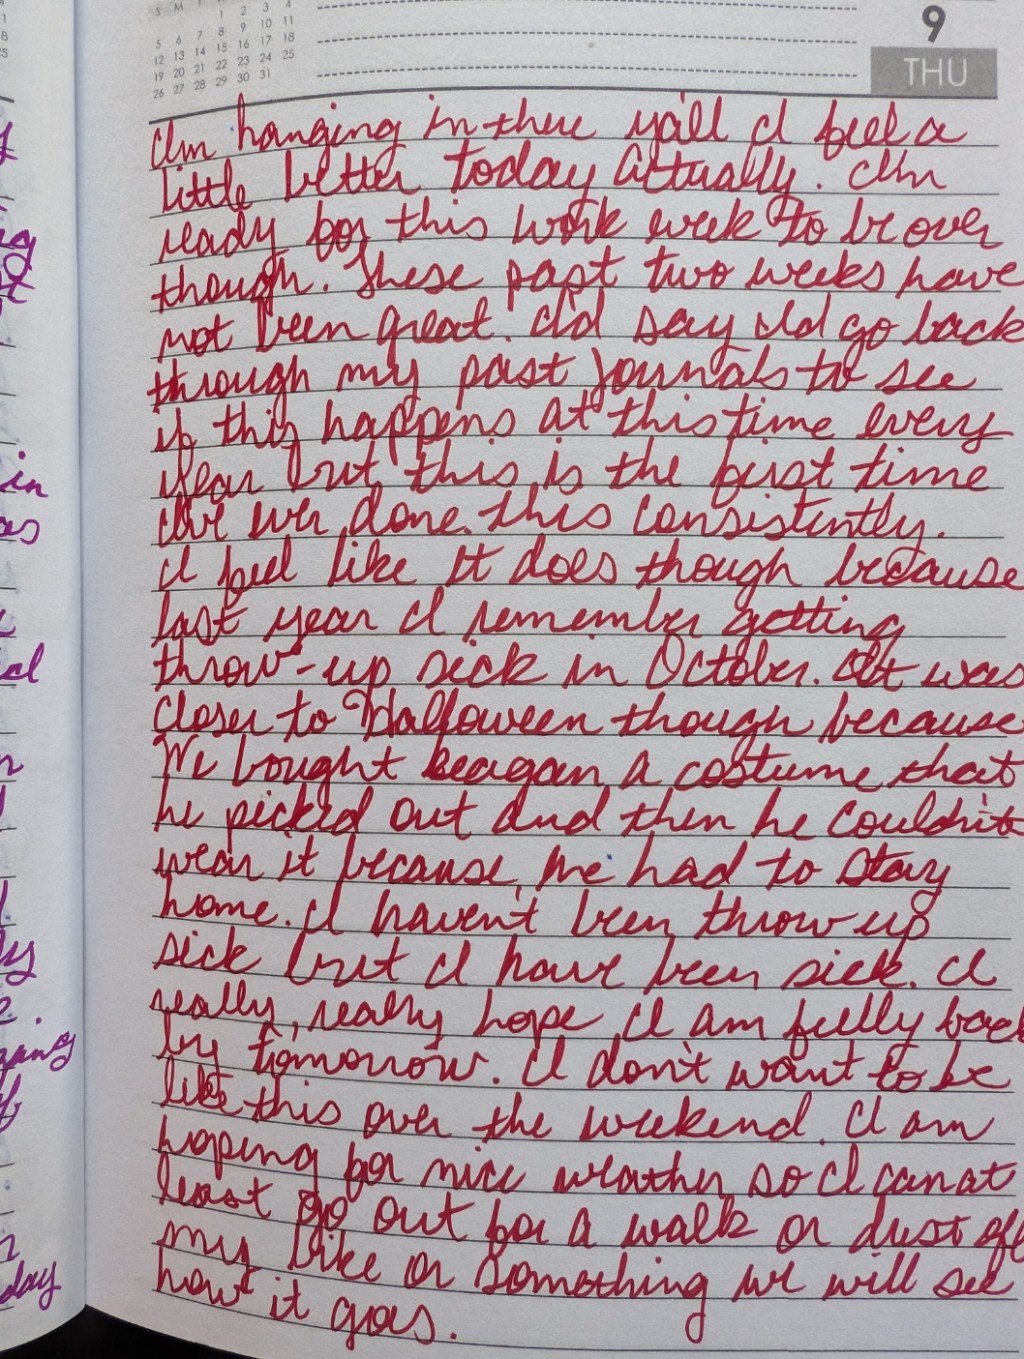 S M T
1 2 3 4
5 6 7 8 9 10 11
12 13 14 15 16 17 18
19 20 21 22 23 24 25
26 27 28 29 30 31
9
THU
I'm hanging in there y'all I feel a
little better today actually. I'm
ready for this work week to be over
though. These past two weeks have
not been great. I'd say I'd go back
through my past journals to see
if this happens at this time every
year but this is the first time
I've ever done this consistently.
I feel like it does though because
last year I remember getting
throw-up sick in October. It was
closer to Halloween though because
we bought Keagan a costume that
he picked out and then he couldn't
wear it because we had to stay
home. I haven't been throw up
sick but I have been sick. I
really, really hope I am fully back
by tomorrow. I don't want to be
like this over the weekend. I am
hoping for nice weather so I can at
least go out for a walk or dust off
my bike or something we will see
how it goes.
in
day